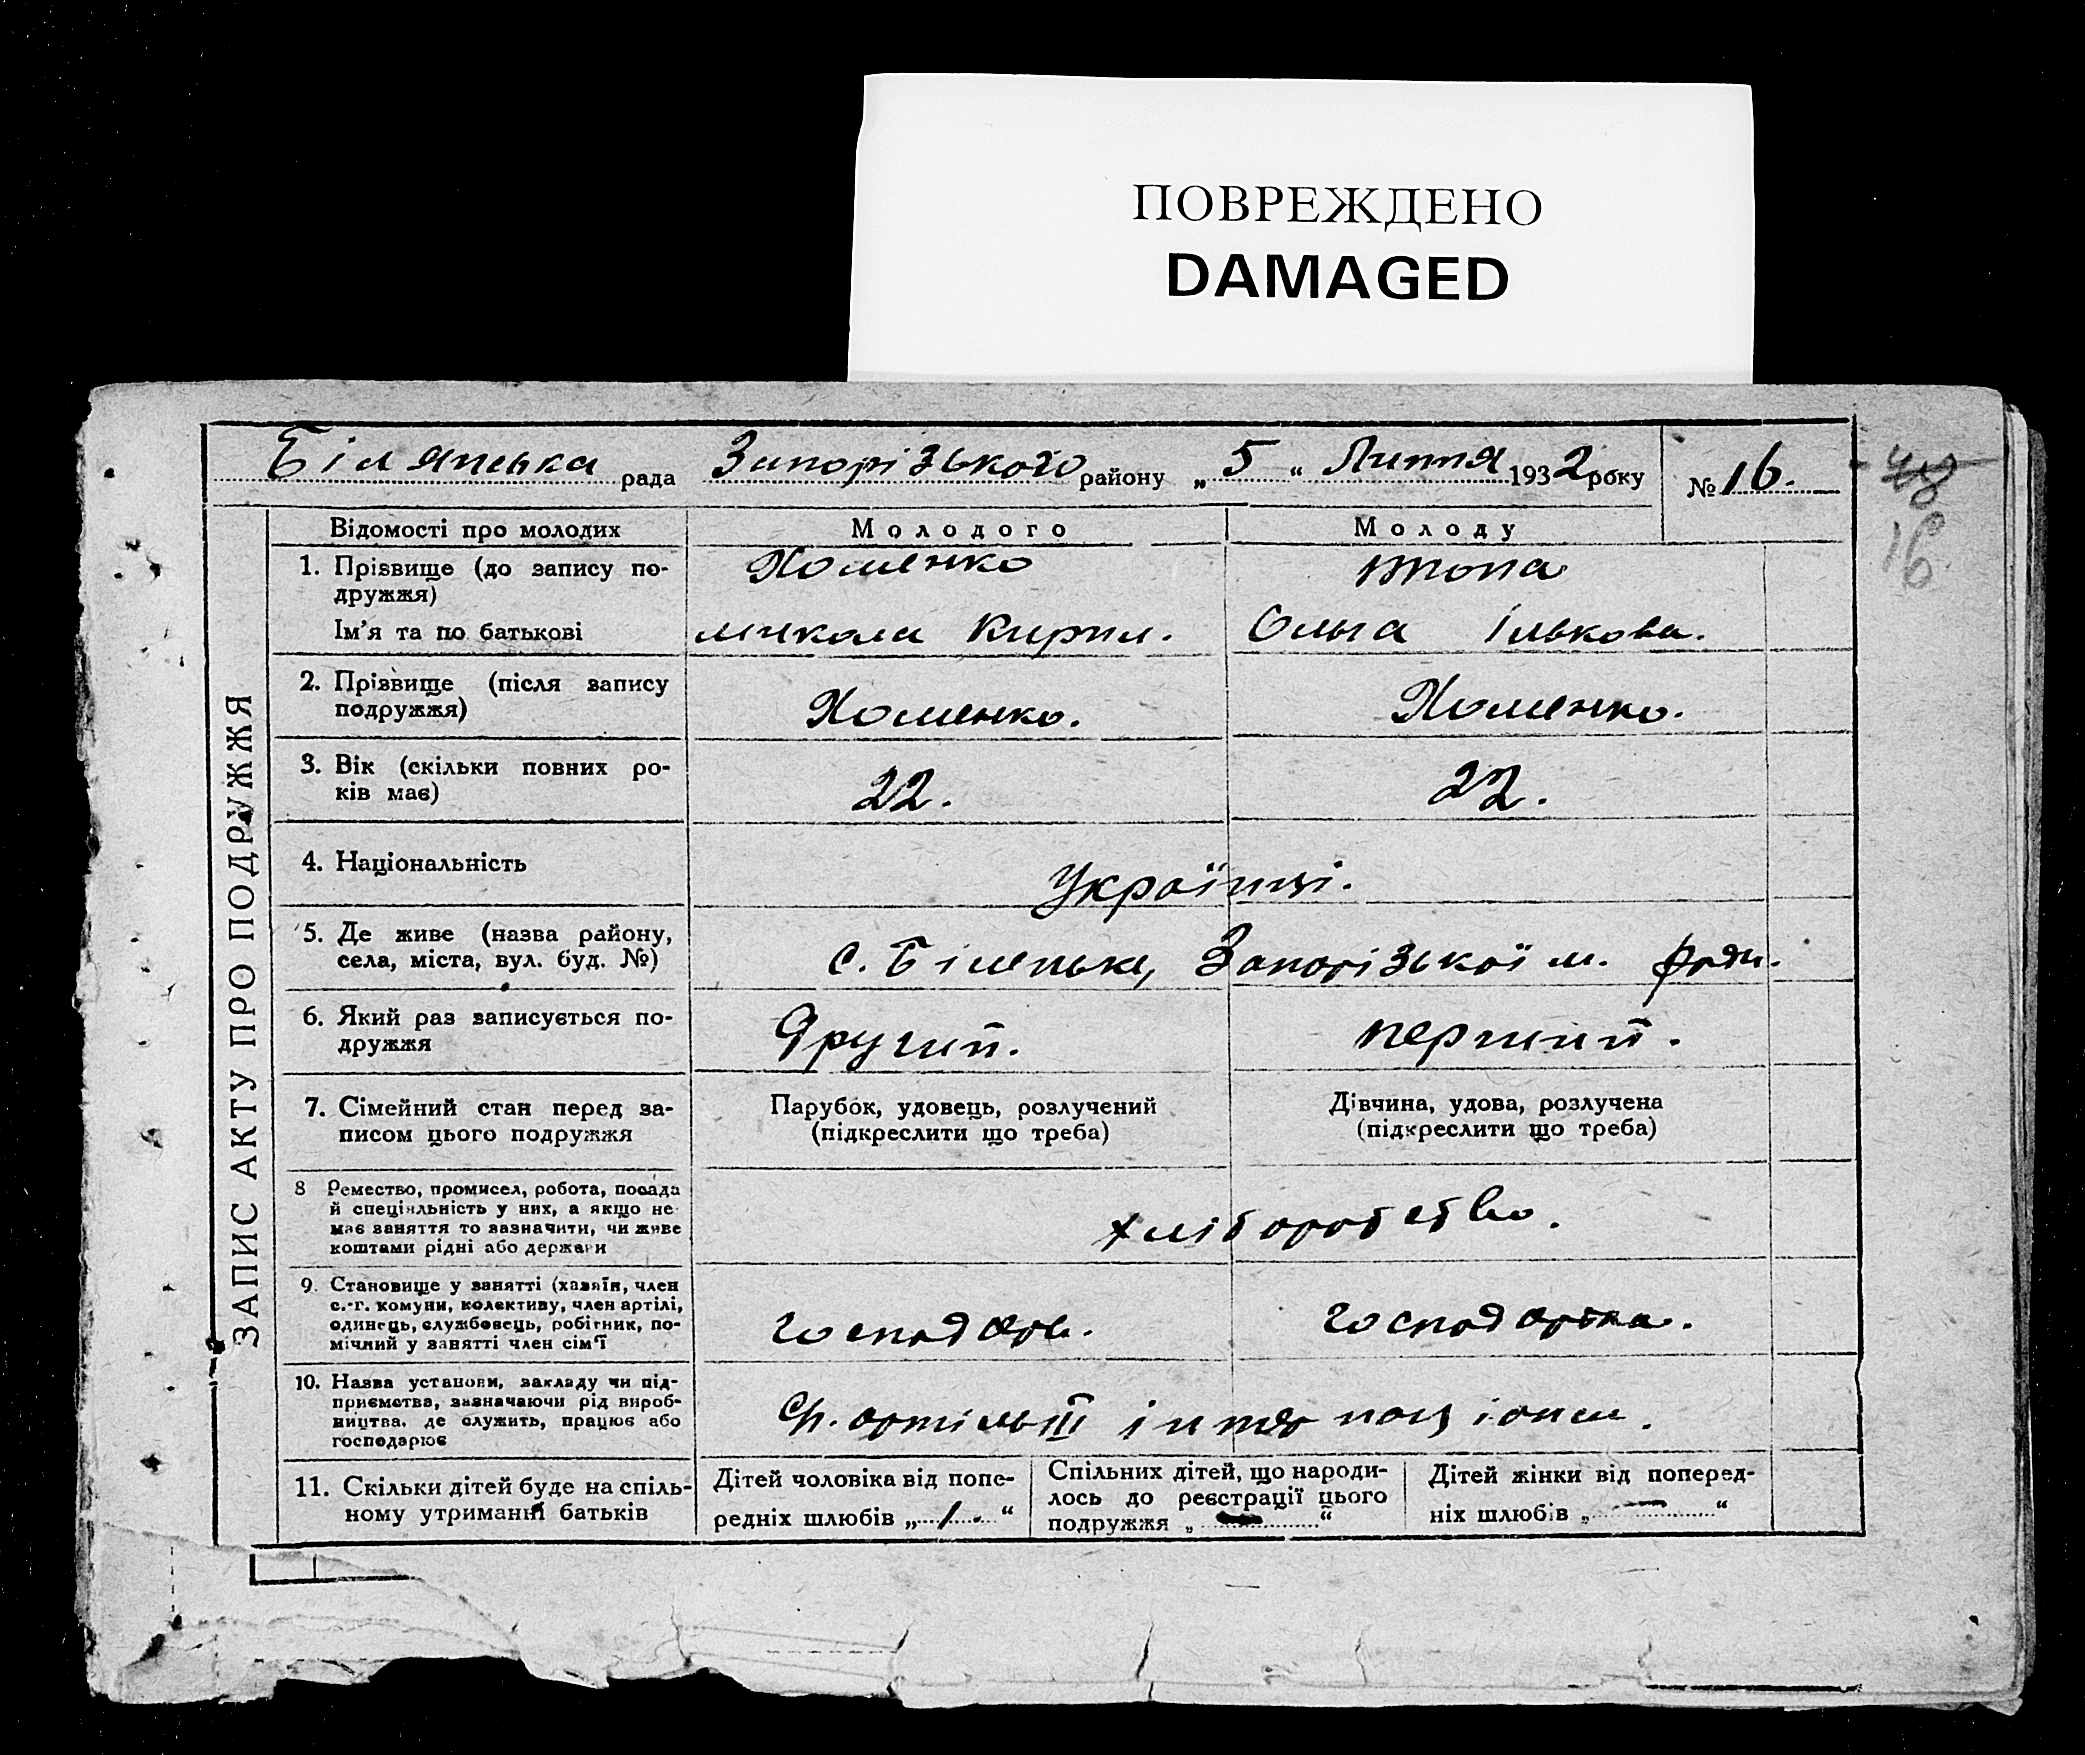 ПОВРЕЖДЕНО
DAMAGED
Білянська рада Запорізького району „5“ Липня 1932 року № 16.
48
16
ЗАПИС АКТУ ПРО ПОДРУЖЖЯ
Відомості про молодих Молодого Молоду
1. Прізвище (до запису по-
дружжя)
Хоменко
Ім'я та по батькові
микола Кирил. Ольга Ількова.
2. Прізвище (після запису
подружжя)
Хоменко. Хоменко.
3. Вік (скільки повних ро-
ків має)
22. 22.
4. Національність
Українці.
5. Де живе (назва району,
села, міста, вул. буд. №)
с. Біленьке, Запорізької м. Ради.
6. Який раз записується по-
дружжя
Другий. перший.
7. Сімейний стан перед за-
писом цього подружжя
Парубок, удовець, розлучений
(підкреслити що треба)
Дівчина, удова, розлучена
(підкреслити що треба)
8 Ремество, промисел, робота, посада
й спеціяльність у них, а якщо не
має заняття то зазначити, чи живе
коштами рідні або держави
хліборобство.
9. Становище у занятті (хазяїн, член
с.-г. комуни, колективу, член артілі,
одинець, службовець, робітник, по-
мічний у занятті член сім'ї
господарь. господарка.
10. Назва установи, закладу чи під-
приємства, зазначаючи рід вироб-
ництва, де служить, працює або
господарює
артіль III інтернаціонал.
11. Скільки дітей буде на спіль-
ному утриманні батьків
Дітей чоловіка від попе-
редніх шлюбів „1.“
Спільних дітей, що народи-
лось до реєстрації цього
подружжя „—“
Дітей жінки від поперед-
ніх шлюбів „—“